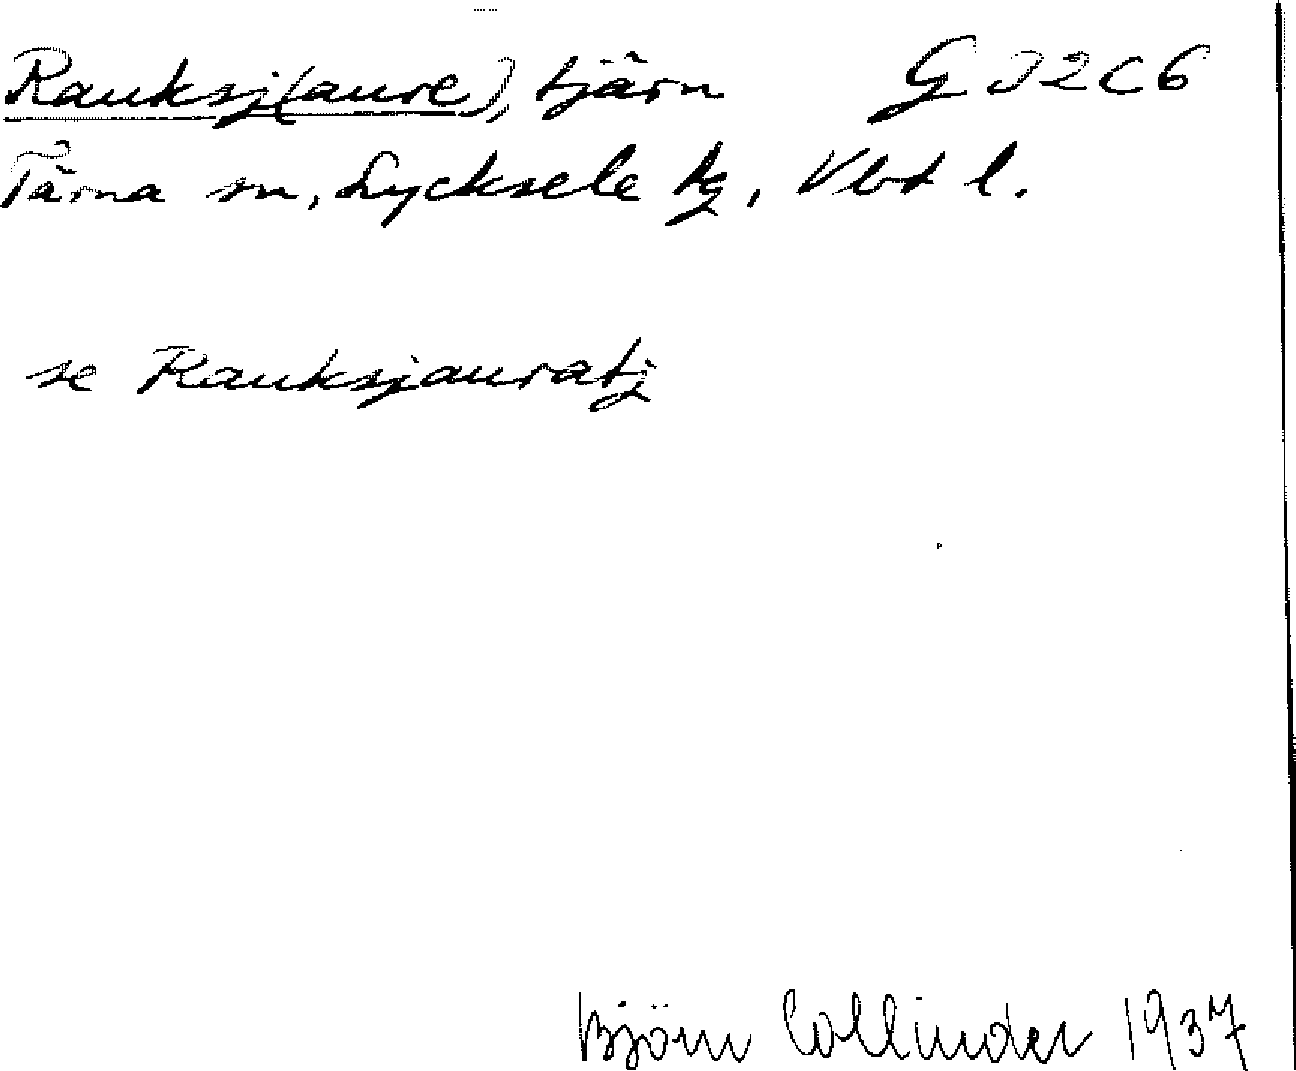 Rauksj(aure), tjärn G I2C6
Tärna sn, Lycksele lg, Vbt l.
se Rauksjauratj
Björn Collinder 1937